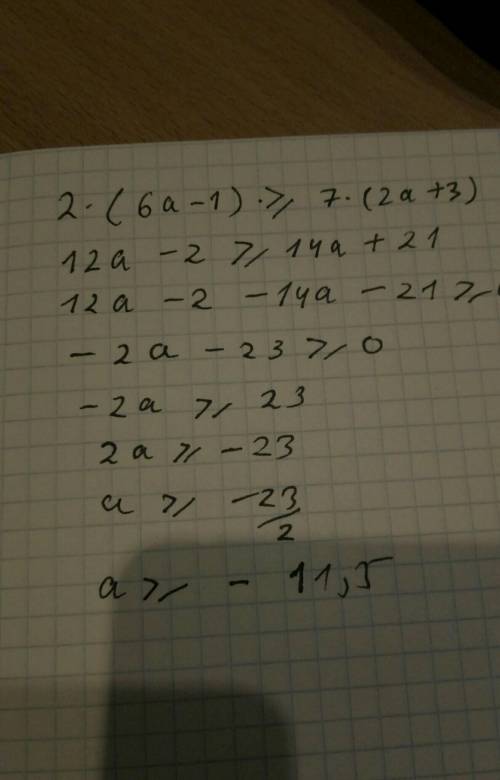 2·(6a-1)·⩾ 7·(2a+3)
12a -2 ⩾ 14a + 21
12a -2 -14a -21 ⩾
-2a -23 ⩾ 0
-2a ⩾ 23
2a ⩾ -23
a ⩾ -23/2
a ⩾ - 11,5